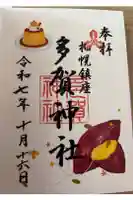 奉拝
札幌鎮座
多賀神社
令和七年十月十六日